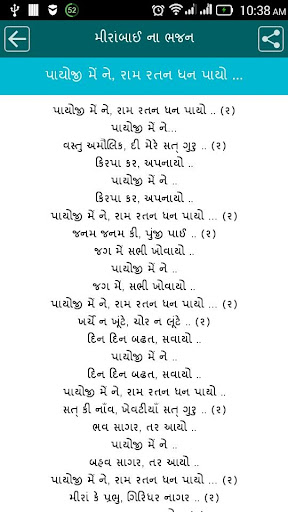 52
10:38 AM
મીરાંબાઈ ના ભજન
પાયોજી મેં ને, રામ રતન ધન પાયો ...
પાયોજી મેં ને, રામ રતન ધન પાયો .. (ર)
પાયોજી મેં ને...
વસ્તુ અમૌલિક, દી મેરે સત્ ગુરુ .. (ર)
કિરપા કર, અપનાયો ..
પાયોજી મેં ને ..
કિરપા કર, અપનાયો ..
પાયોજી મેં ને, રામ રતન ધન પાયો ... (ર)
જનમ જનમ કી, પુંજી પાઈ .. (ર)
જગ મેં સભી ખોવાયો ..
પાયોજી મેં ને ..
જગ મેં, સભી ખોવાયો ..
પાયોજી મેં ને, રામ રતન ધન પાયો ... (ર)
ખર્ચે ન ખૂંટે, ચોર ન લૂંટે .. (ર)
દિન દિન બઢત, સવાયો ..
પાયોજી મેં ને ..
દિન દિન બઢત, સવાયો ..
પાયોજી મેં ને, રામ રતન ધન પાયો ... (ર)
સત્ કી નાઁવ, ખેવટીયાઁ સત્ ગુરુ .. (ર)
ભવ સાગર, તર આયો ..
પાયોજી મેં ને ..
બહ્વ સાગર, તર આયો ..
પાયોજી મેં ને, રામ રતન ધન પાયો ... (ર)
મીરાં કે પ્રભુ, ગિરિધર નાગર .. (ર)